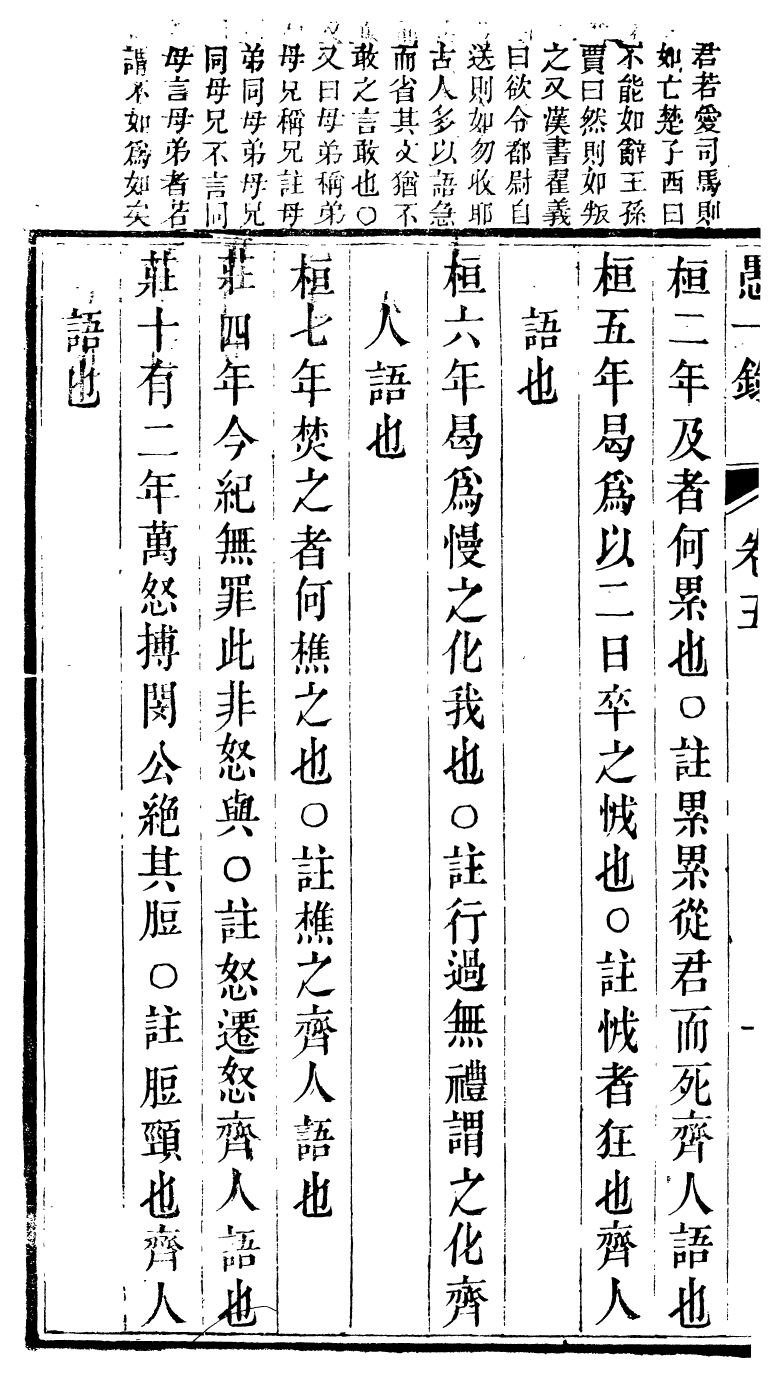 君若愛司馬則
如亡楚子西曰
不能如辭王孫
賈曰然則如叛
之又漢書翟義
曰欲令都尉自
送則如勿收耶
古人多以語急
而省其文猶不
敢之言敢也○
又曰母弟稱弟
母兄稱兄註母
弟同母弟母兄
同母兄不言同
母言母弟者若
謂不如爲如矣
愚一錄
卷五
桓二年及者何累也○註累累從君而死齊人語也
桓五年曷爲以二日卒之怴也○註怴者狂也齊人
語也
桓六年曷爲慢之化我也○註行過無禮謂之化齊
人語也
桓七年焚之者何樵之也○註樵之齊人語也
莊四年今紀無罪此非怒與○註怒遷怒齊人語也
莊十有二年萬怒搏閔公絶其脰○註脰頸也齊人
語也